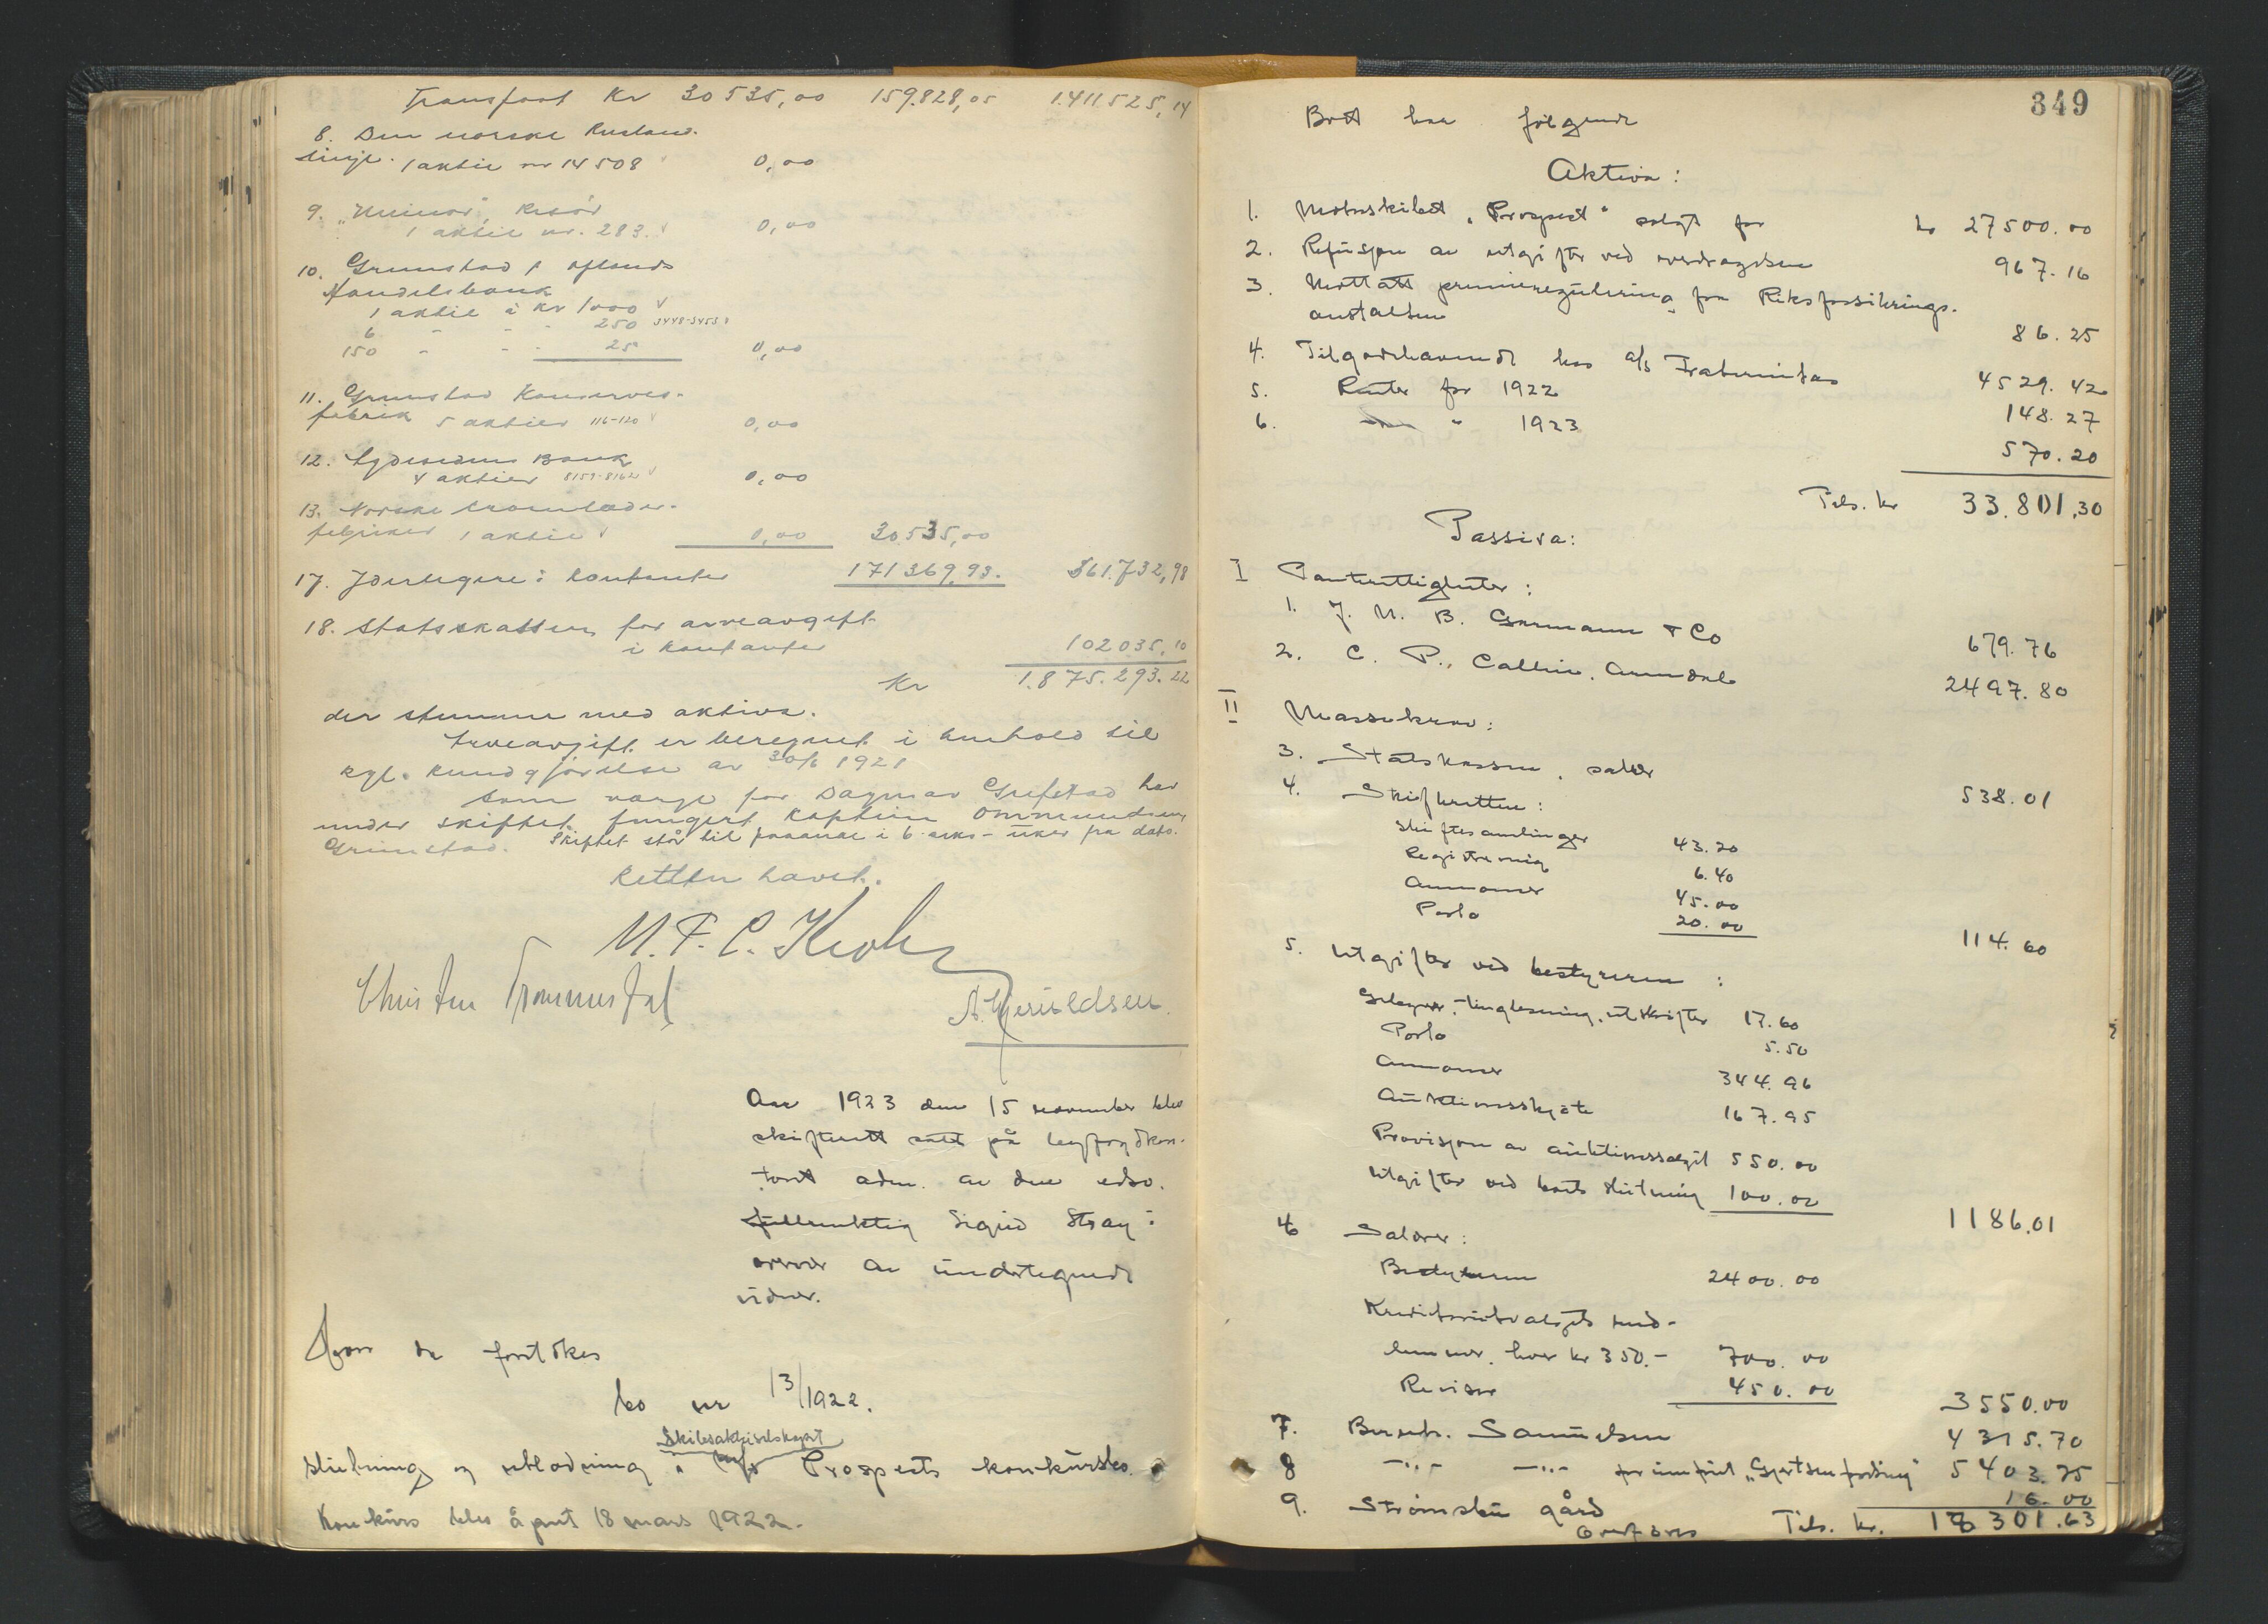 Transport Kr 30535,00 159.828,05 1.411.525,14
8. Den norske Rusland-
linje. 1 aktie nr 14508 0,00
9. "Minor", Risør
1 aktie nr. 283. 0,00
10. Grimstad & oplands
Handelsbank
1 aktie à kr 1000
6 - - - 250 3448-3453
150 - - - 25 0,00
11. Grimstad Konserves-
fabrik 5 aktier 116-120 0,00
12. Sydesdens Bank
4 aktier 8159-8162 0,00
13. Norske
fabriker 1 aktie 0,00 30535,00
17. Yderligere i kontanter 171369,93. 361.732,98
18. Statskassen for arveavgift
i kontanter 102035,10
Kr 1.875.293.22
der stemme med aktiva.
Arveavgift er beregnet i henhold til
kgl. kundgjørelse av 30/6 1921
Som verge for Dagmar Grefstad har
under skiftet fungert kaptein Ommundsen
Grimstad. Skiftet står til paaanke i 6 seks - uker fra dato.
Retten hævet.
M.F.C. Krohn
Christen Trommestad A. Gjeruldsen.
Aar 1923 den 15 november blev
skifterett satt på byfogdkon-
toret adm. av den edsv.
fullmektig Sigrid Stray i
overvær av undertegnede
vidner.
Hvor da foretokes
bo nr 13/1922.
Skibsaktieselskapet
slutning og utlodning i Prospects konkursbo.
Konkurs blev åpnet 18 mars 1922.
349
Boet har følgende
Aktiva:
1. Motorskibet "Prospect" solgt for kr 27500.00
2. Refusjon av utgifter ved overdragelsen 967.16
3. Mottatt premieregulering fra Riksforsikrings-
anstalten 86.25
4. Tilgodehavende hos a/s Fraternitas 4529.42
5. Renter for 1922 148.27
6. " 1923 570.20
Tils. kr 33.801,30
Passiva:
I Panterettigheter:
1. J. N. B. Gormann & Co 679.76
2. C. P., Callin, Arendal 2497.80
II Massekrav:
3. Statskassen, salær 538.01
4. Skifteretten:
Skiftesamlinger 43.20
Registrering 6.40
Annonser 45.00
Porto 20.00 114.60
5. Utgifter ved bestyreren:
Gebyrer, tinglesning, utskrifter 17.60
Porto 5.50
Annonser 344.96
Auktionsskjøte 167.95
Provisjon av auktionssalget 550.00
Utgifter ved boets slutning 100.00 1186.01
6 Salærer:
Bestyreren 2400.00
Kreditorutvalgets med-
lemmer, hver kr 350.- 700.00
Revisor 450.00 3550.00
7. Bernh. Samuelsen 4315.70
8 -"- -"- for innfriet "Gjertsenfordring" 5403.75
9. Strømsbu gård 16.00
Overføres Tils. kr. 18301.63